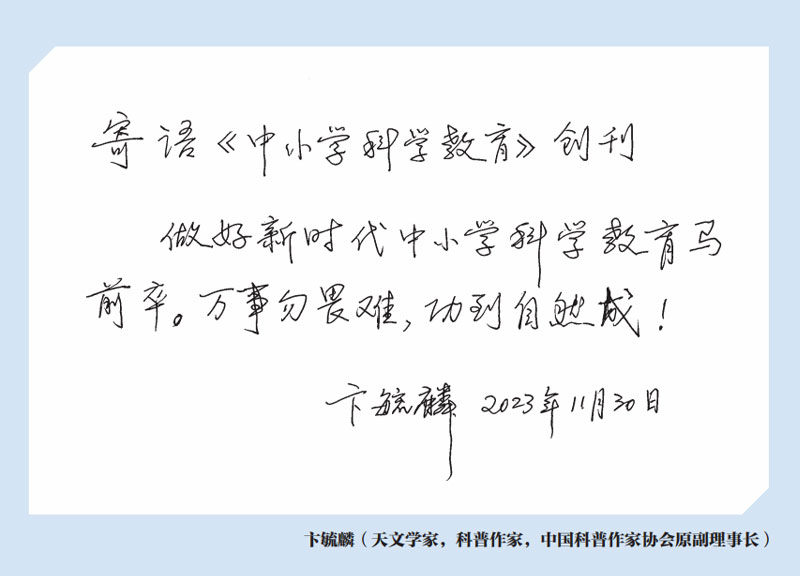 寄语《中小学科学教育》创刊
做好新时代中小学科学教育马
前卒。万事勿畏难，功到自然成！
卞毓麟 2023年11月30日
卞毓麟（天文学家，科普作家，中国科普作家协会原副理事长）